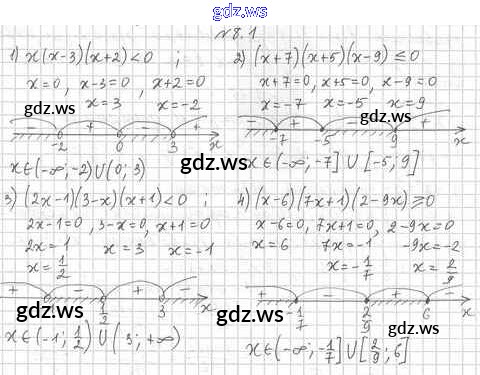 gdz.ws
№8.1
1) x(x-3)(x+2)<0 ;
x=0, x-3=0, x+2=0
x=3 x=-2
gdz.ws
- + - +
-2 0 3 x
x∈(-∞;-2)∪(0;3)
gdz.ws
2) (x+7)(x+5)(x-9)≤0
x+7=0, x+5=0, x-9=0
x=-7 x=-5 x=9
gdz.ws
- + - +
-7 -5 9 x
x∈(-∞;-7]∪[-5;9]
gdz.ws
3) (2x-1)(3-x)(x+1)<0 ;
2x-1=0, 3-x=0, x+1=0
2x=1 x=3 x=-1
x=1/2
+ - + -
1/2 3 x
gdz.ws
x∈(-1;1/2)∪(3;+∞)
4) (x-6)(7x+1)(2-9x)≥0
x-6=0, 7x+1=0, 2-9x=0
x=6 7x=-1 -9x=-2
x=-1/7 x=2/9
+ - + -
-1/7 2/9 6 x
gdz.ws
x∈(-∞;-1/7]∪[2/9;6]